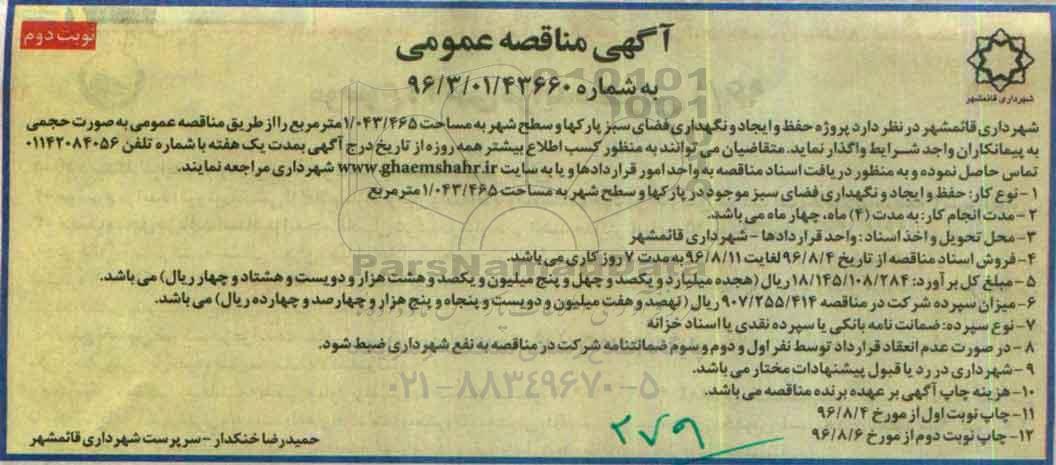 نوبت دوم
آگهی مناقصه عمومی
به شماره ۹۶/۳/۰۱/۴۳۶۶۰
شهرداری قائمشهر
شهرداری قائمشهر در نظر دارد پروژه حفظ و ایجاد و نگهداری فضای سبز پارکها و سطح شهر به مساحت ۱/۰۴۳/۴۶۵ مترمربع را از طریق مناقصه عمومی به صورت حجمی
به پیمانکاران واجد شرایط واگذار نماید. متقاضیان می توانند به منظور کسب اطلاع بیشتر همه روزه از تاریخ درج آگهی بمدت یک هفته با شماره تلفن ۰۱۱۴۲۰۸۴۰۵۶
تماس حاصل نموده و به منظور دریافت اسناد مناقصه به واحد امور قراردادها و یا به سایت www.ghaemshahr.ir شهرداری مراجعه نمایند.
۱- نوع کار: حفظ و ایجاد و نگهداری فضای سبز موجود در پارکها و سطح شهر به مساحت ۱/۰۴۳/۴۶۵ مترمربع
۲- مدت انجام کار: به مدت (۴) ماه، چهار ماه می باشد.
۳- محل تحویل و اخذ اسناد: واحد قراردادها - شهرداری قائمشهر
۴- فروش اسناد مناقصه از تاریخ ۹۶/۸/۴ لغایت ۹۶/۸/۱۱ به مدت ۷ روز کاری می باشد.
۵- مبلغ کل برآورد: ۱۸/۱۴۵/۱۰۸/۲۸۴ ریال (هجده میلیارد و یکصد و چهل و پنج میلیون و یکصد و هشت هزار و دویست و هشتاد و چهار ریال) می باشد.
۶- میزان سپرده شرکت در مناقصه ۹۰۷/۲۵۵/۴۱۴ ریال (نهصد و هفت میلیون و دویست و پنجاه و پنج هزار و چهارصد و چهارده ریال) می باشد.
۷- نوع سپرده: ضمانت نامه بانکی یا سپرده نقدی یا اسناد خزانه
۸- در صورت عدم انعقاد قرارداد توسط نفر اول و دوم و سوم ضمانتنامه شرکت در مناقصه به نفع شهرداری ضبط شود.
۹- شهرداری در رد یا قبول پیشنهادات مختار می باشد.
۱۰- هزینه چاپ آگهی بر عهده برنده مناقصه می باشد.
۱۱- چاپ نوبت اول از مورخ ۹۶/۸/۴
۱۲- چاپ نوبت دوم از مورخ ۹۶/۸/۶
حمیدرضا خنکدار - سرپرست شهرداری قائمشهر
۲۷۹
ParsNamadData
۰۲۱-۸۸۳۴۹۶۷۰-۵